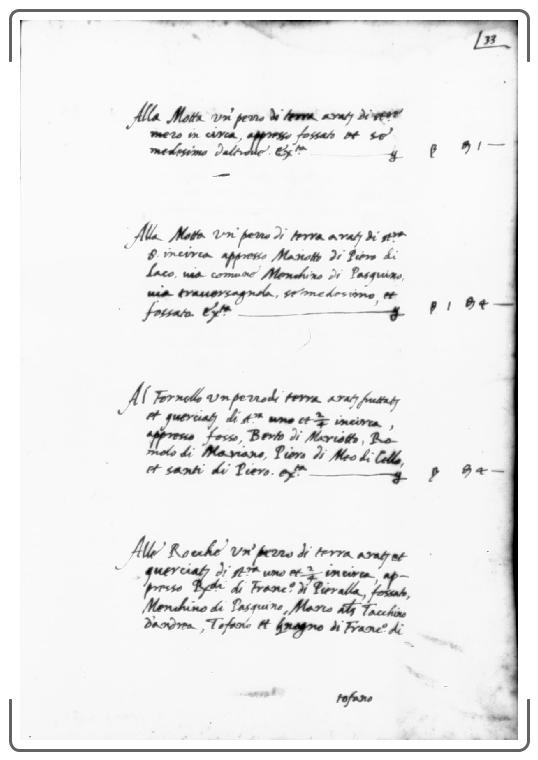 33
Alla Motta un pezzo di terra arat; di
mezo in circa, appresso fossato et se
medesimo daltroue. &xta
Alla Motta un pezzo di terra arat; di stra
8 incirca appresso Mariotto di Piero di
laco, uia comune Menchino di Pasquino,
uia trauersagnola, se medesimo, et
fossato &xta
Al Fornello un pezzo di terra arat; fruttat;
et querciat; di stra uno et 2/4 incirca,
appresso fosso, Berto di Mariotto, Ro
molo di Mariano, Piero di Meo di Cello,
et santi di Piero. &xta
Alle Rocche un pezzo di terra arat; et
querciat; di stra uno et 2/4 incirca, ap-
presso di Franco di Pieralla, fossato,
Menchino di Pasquino, Marco Tacchino
d'andrea, Tofano et di Franco di
tofano